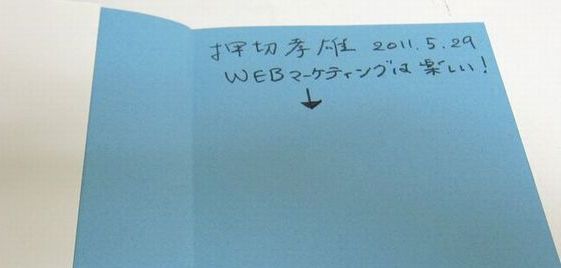 押切孝雄 2011.5.29
WEBマーケティングは楽しい!
↓